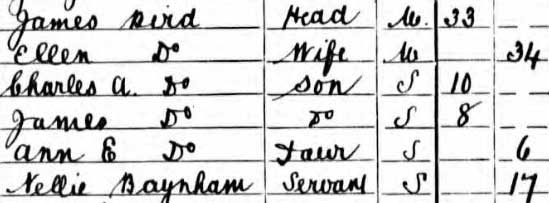 James Bird Head M. 33 _ _
Ellen Do Wife M 34
Charles A. Do Son S 10 _ _
James Do Do S 8 _ _
Ann E Do Daur S 6
Nellie Baynham Servant S 17